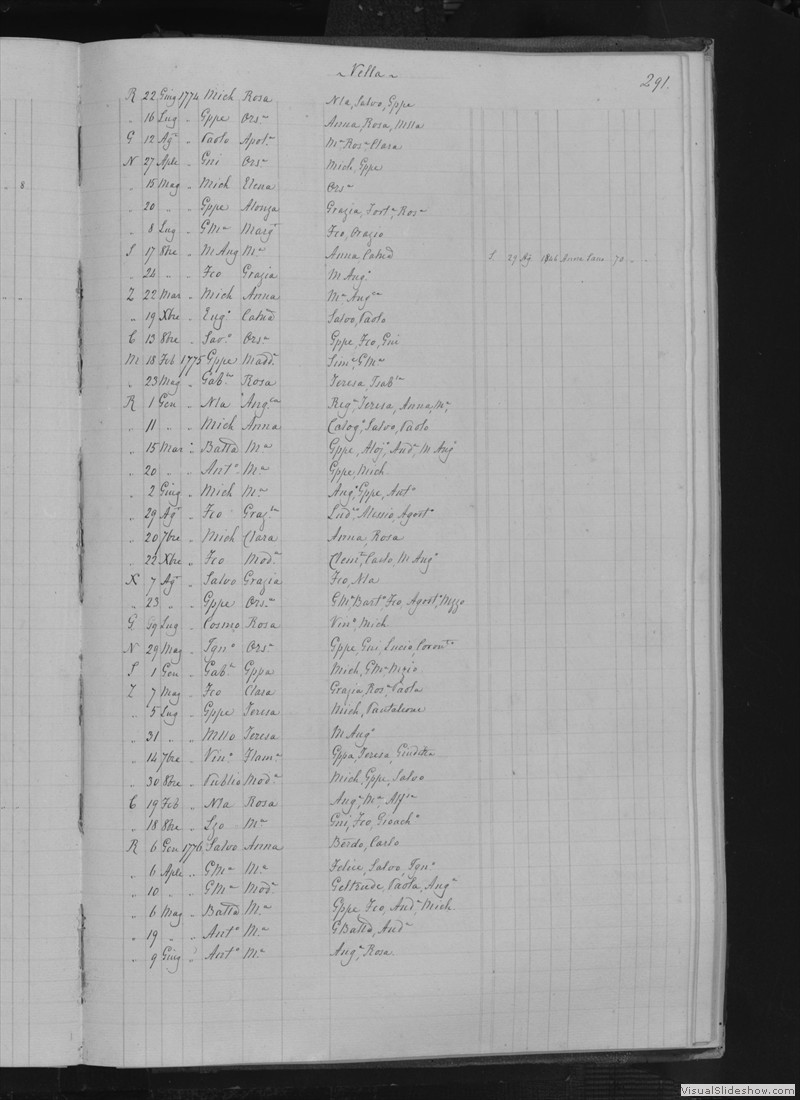 ~ Vella ~
291.
R 22 Giug 1774 Mich Rosa Nla, Salvo, Gppe
" 16 Lug " Gppe Ors.ª Anna, Rosa, Mlla
G 12 Ag.º " Paolo Apol.ª M.ª Ros.ª Clara
N 27 Aple " Gni Ors.ª Mich, Gppe
" 15 Mag " Mich Elena Ors.ª
" 20 " " Gppe Alonza Grazia, Fort.ª, Ros.ª
" 8 Lug " GM.ª Marg.ª Fco, Orazio
S 17 8bre " M Ang M.ª Anna, Catnd S. 29 Ag.
" 24 " " Fco Grazia M Ang.º
Z 22 Mar " Mich Anna M.ª Ang.ca
" 19 Xbre " Eug.º Catnd Salvo, Paolo
C 13 8bre " Sav.º Ors.ª Gppe, Fco, Gni
M 18 Feb 1775 Gppe Madd.ª Sim.e GM.ª
" 23 Mag " Gab.le Rosa Teresa, Isab.la
R 1 Gen " Nla Ang.ca Reg.ª Teresa, Anna, M.ª
" 11 " " Mich Anna Calog.º Salvo, Paolo
" 15 Mar " Batta M.ª Gppe, Aloj.º And.ª, M Ang.º
" 20 " " Ant.º M.ª Gppe, Mich
" 2 Giug " Mich M.ª Ang.º Gppe, Ant.º
" 29 Ag.º " Fco Graz.la Lud.º Alessio, Agost.º
" 20 7bre " Mich Clara Anna, Rosa
" 22 Xbre " Fco Mod.ª Clem.te, Carlo, M Ang.º
X 7 Ag.º " Salvo Grazia Fco, Nla
" 23 " " Gppe Ors.ª GM.ª, Bart.º, Fco, Agost.º, Mzzo
G 29 Lug " Cosmo Rosa Vin.º, Mich
N 29 Mag " Ign.º Ors.ª Gppe, Gni, Lucio,
S 1 Gen " Gab.le Gppa Mich, GM.ª
Z 7 Mag " Fco Clara Grazia, Ros.ª, Paola
" 5 Lug " Gppe Teresa Mich, Pantaleone
" 31 " " Mllo Teresa M Ang.º
" 14 7bre " Vin.º Flam.ª Gppa, Teresa, Giuditta
" 30 8bre " Publio Mod.ª Mich, Gppe, Salvo
C 19 Feb " Nla Rosa Ang.º, M.ª, Alf.so
" 18 8bre " Lzo M.ª Gni, Fco, Gioach.º
R 6 Gen 1776 Salvo Anna Berdo, Carlo
" 6 Aple " GM.ª M.ª Felice, Salvo, Ign.º
" 10 " " GM.ª Mod.ª Geltrude, Paola, Ang.º
" 6 Mag " Batta M.ª Gppe, Fco, And.ª, Mich.
" 19 " " Ant.º M.ª GBatta, And.ª
" 9 Giug " Ant.º M.ª Ang.º, Rosa
8
VisualSlideshow.com